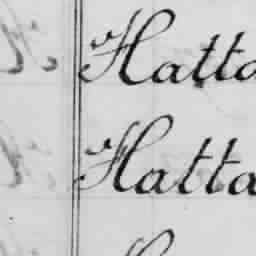 Hatta
Hatta